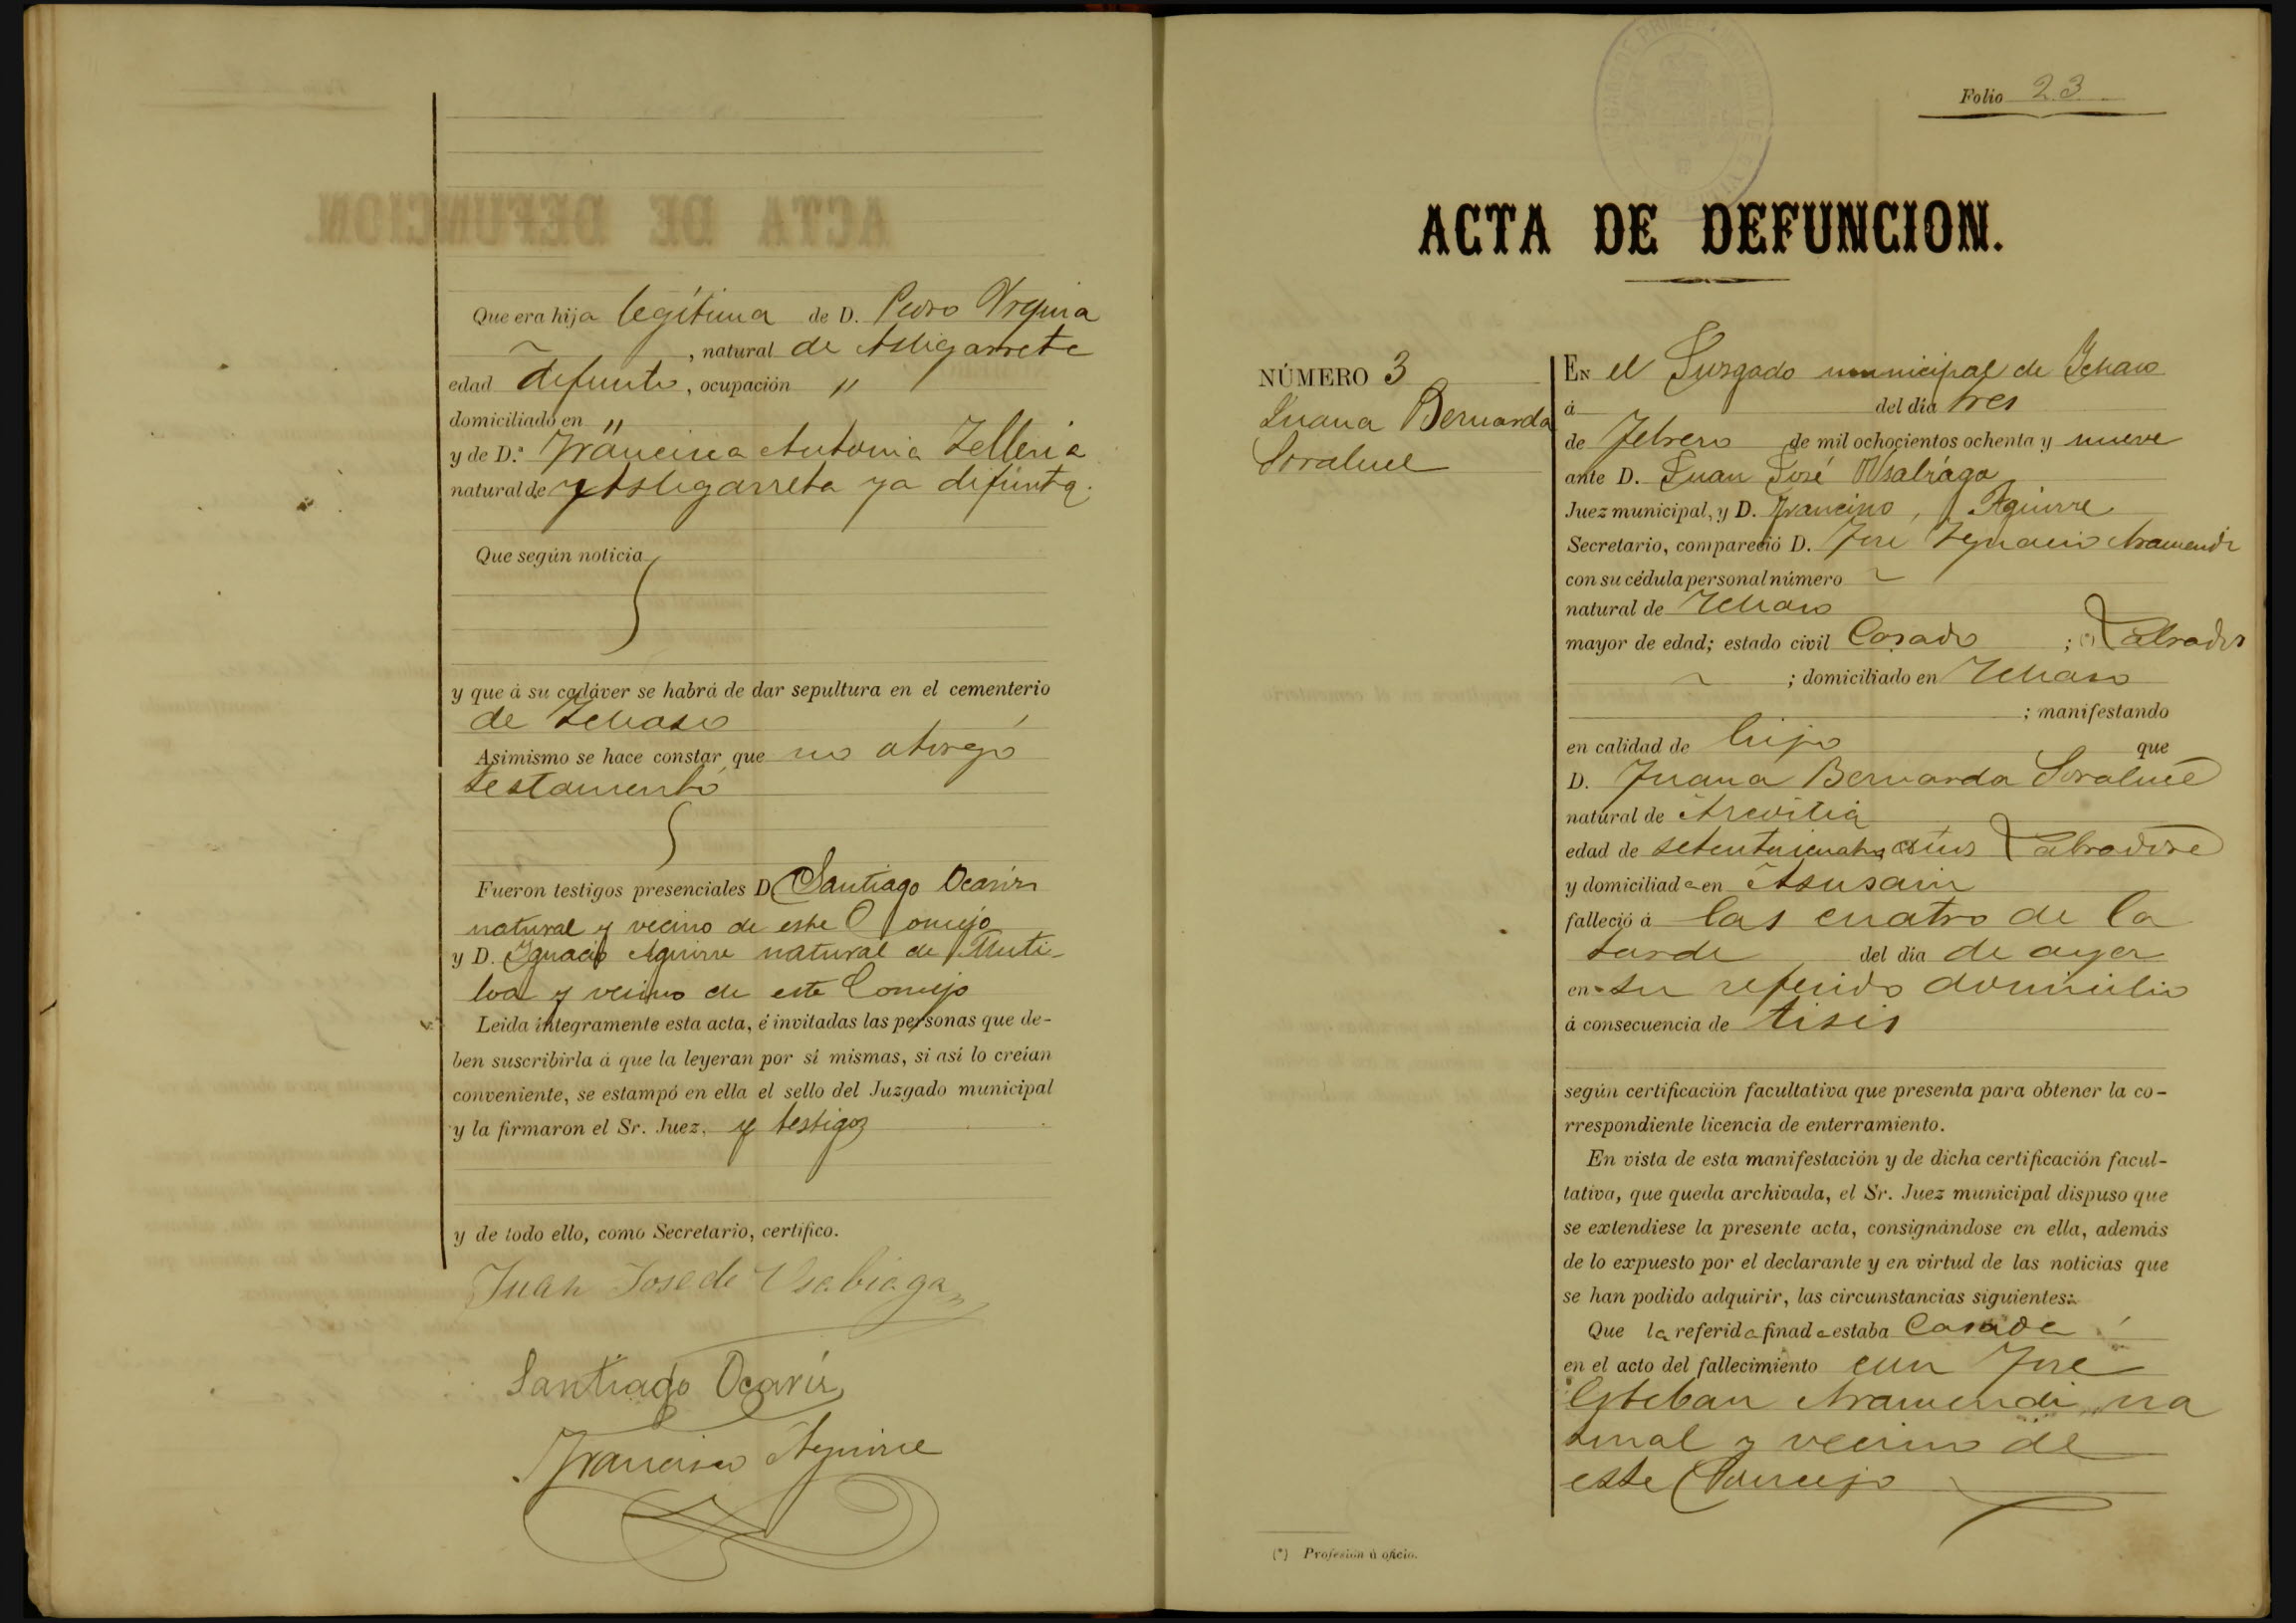 Que era hija legítima de D. Pedro Urquia
, natural de Astigarreta
edad difunto, ocupación "
domiciliado en "
y de D.ª Francisca Antonia Telleria
natural de Astigarreta ya difunta.
Que según noticia
y que á su cadáver se habrá de dar sepultura en el cementerio
de Ichaso
Asimismo se hace constar que no otorgó
testamento
Fueron testigos presenciales D. Santiago Ocariz
natural y vecino de este Concejo
y D. Ignacio Aguirre natural de Muti-
loa y vecino de este Concejo
Leida íntegramente esta acta, é invitadas las personas que de-
ben suscribirla á que la leyeran por sí mismas, si así lo creían
conveniente, se estampó en ella el sello del Juzgado municipal
y la firmaron el Sr. Juez, y testigos
y de todo ello, como Secretario, certifico.
Juan Jose de Usabiaga
Santiago Ocariz
Francisco Aguirre
Folio 23
ACTA DE DEFUNCION.
NÚMERO 3
Juana Bernarda
Soraluce
EN el Juzgado municipal de Ichaso
á del dia tres
de Febrero de mil ochocientos ochenta y nueve
ante D. Juan José Usabiaga
Juez municipal, y D. Francisco Aguirre
Secretario, compareció D. José Ignacio Aramendi
con su cédula personal número
natural de Ichaso
mayor de edad; estado civil Casado ; (*) Labrador
; domiciliado en Ichaso
; manifestando
en calidad de hijo que
D. Juana Bernarda Soraluce
natural de
edad de setenticuatro años Labradora
y domiciliada en
falleció á las cuatro de la
tarde del dia de ayer
en su referido domicilio
á consecuencia de tisis
según certificación facultativa que presenta para obtener la co-
rrespondiente licencia de enterramiento.
En vista de esta manifestación y de dicha certificación facul-
tativa, que queda archivada, el Sr. Juez municipal dispuso que
se extendiese la presente acta, consignándose en ella, además
de lo expuesto por el declarante y en virtud de las noticias que
se han podido adquirir, las circunstancias siguientes:
Que la referida finada estaba Casada
en el acto del fallecimiento con José
Esteban Aramendi na
tural y vecino de
este Concejo
(*) Profesión ú oficio.